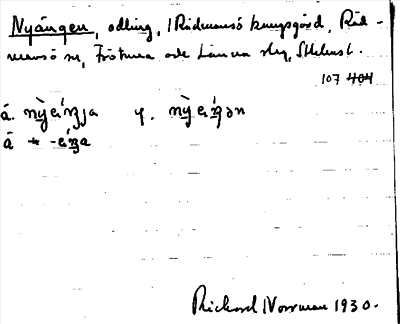 Nyängen, odling, i Rådmansö kungsgård, Råd-
mansö sn, Frötuna och Länna skg, Sthlms l.
107 404
å. nỳeińʒja y. nỳeińʒən
å * -eińʒa
Richard Norrman 1930.